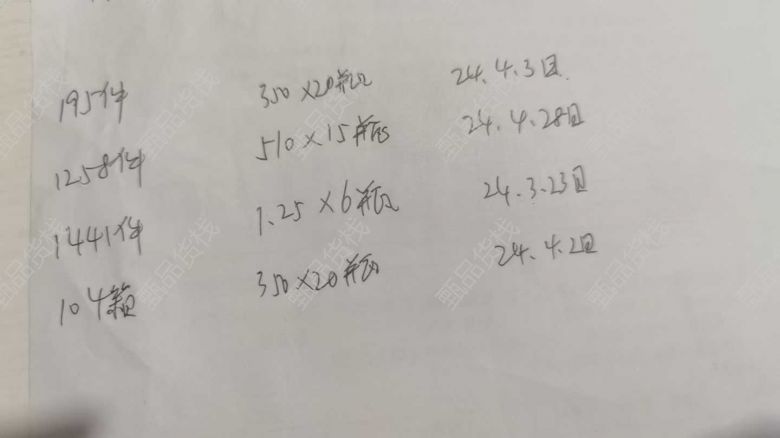 195件 350×20瓶 24.4.3日
1258件 510×15瓶 24.4.28日
1441件 1.25×6瓶 24.3.23日
104 350×20瓶 24.4.2日
甄品货栈